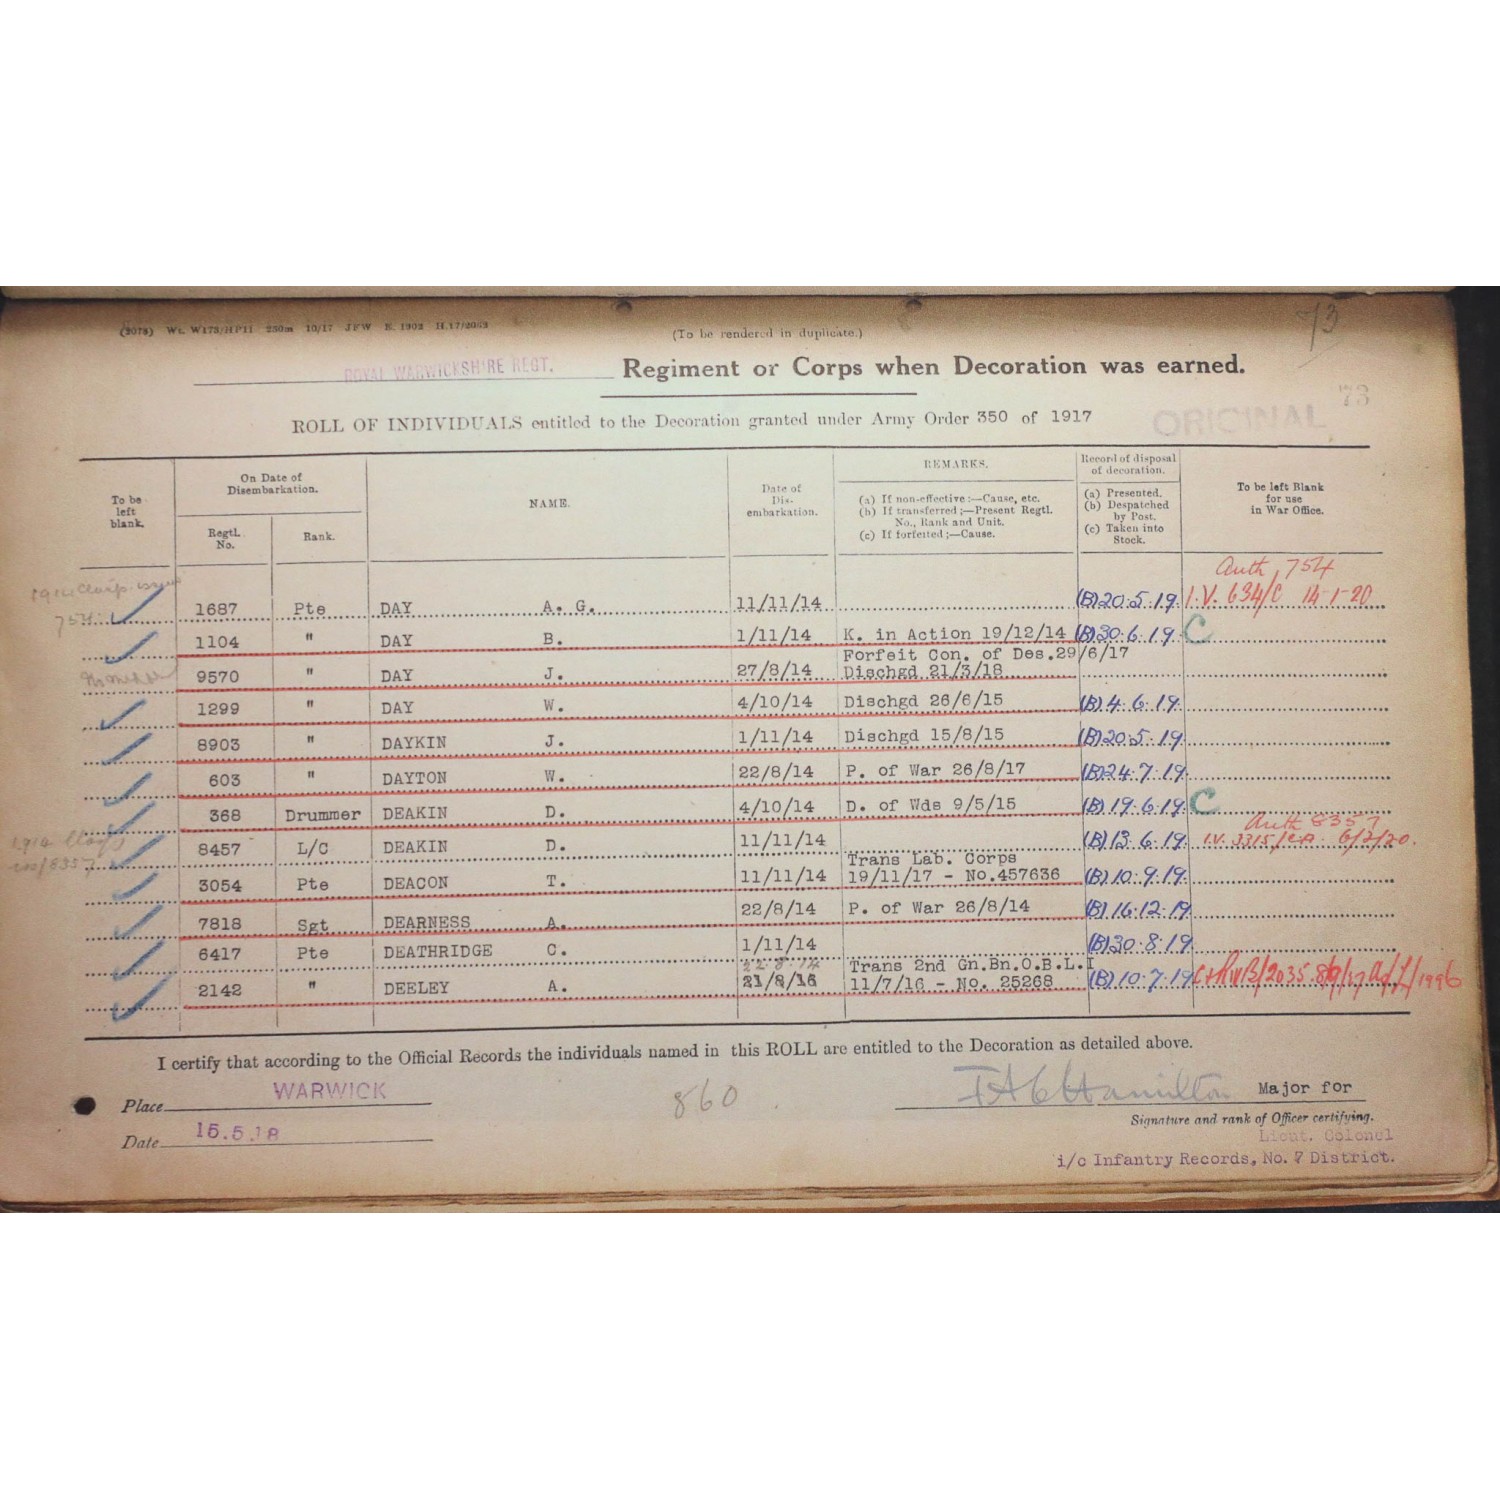 (2073) Wt. W173/HP11 250m 10/17 JFW E. 1902 H.17/2053
(To be rendered in duplicate.)
73
ROYAL WARWICKSHIRE REGT. Regiment or Corps when Decoration was earned.
73
ORIGINAL
ROLL OF INDIVIDUALS entitled to the Decoration granted under Army Order 350 of 1917
To be left blank.
On Date of Disembarkation.
Regtl. No.
Rank.
NAME.
Date of Dis-embarkation.
REMARKS.
(a) If non-effective:—Cause, etc.
(b) If transferred;—Present Regtl. No., Rank and Unit.
(c) If forfeited;—Cause.
Record of disposal of decoration.
(a) Presented.
(b) Despatched by Post.
(c) Taken into Stock.
To be left Blank for use in War Office.
Auth 754
1914 Clasp issued
754 1687 Pte DAY A. G. 11/11/14 (B) 20.5.19. I.V. 634/C 14-1-20
1104 " DAY B. 1/11/14 K. in Action 19/12/14 (B) 30.6.19. C
Forfeit Con. of Des. 29/6/17
9570 " DAY J. 27/8/14 Dischgd 21/3/18
1299 " DAY W. 4/10/14 Dischgd 26/6/15 (B) 4.6.19.
8903 " DAYKIN J. 1/11/14 Dischgd 15/8/15 (B) 20.5.19.
603 " DAYTON W. 22/8/14 P. of War 26/8/17 (B) 24.7.19.
368 Drummer DEAKIN D. 4/10/14 D. of Wds 9/5/15 (B) 19.6.19. C
Auth 8357
1914 Clasp
iss/8357 8457 L/C DEAKIN D. 11/11/14 (B) 13.6.19. I.V. 3315/ 6/2/20.
Trans Lab. Corps
3054 Pte DEACON T. 11/11/14 19/11/17 - No.457636 (B) 10.9.19.
7818 Sgt DEARNESS A. 22/8/14 P. of War 26/8/14 (B) 16.12.19
6417 Pte DEATHRIDGE C. 1/11/14 (B) 30.8.19
22.8.14 Trans 2nd Gn.Bn.O.B.L.I
2142 " DEELEY A. 21/8/16 11/7/16 - No. 25268 (B) 10.7.19
I certify that according to the Official Records the individuals named in this ROLL are entitled to the Decoration as detailed above.
Place WARWICK
860
Hamilton Major for
Signature and rank of Officer certifying.
Date 15.5.18
Lieut. Colonel
i/c Infantry Records, No. 7 District.